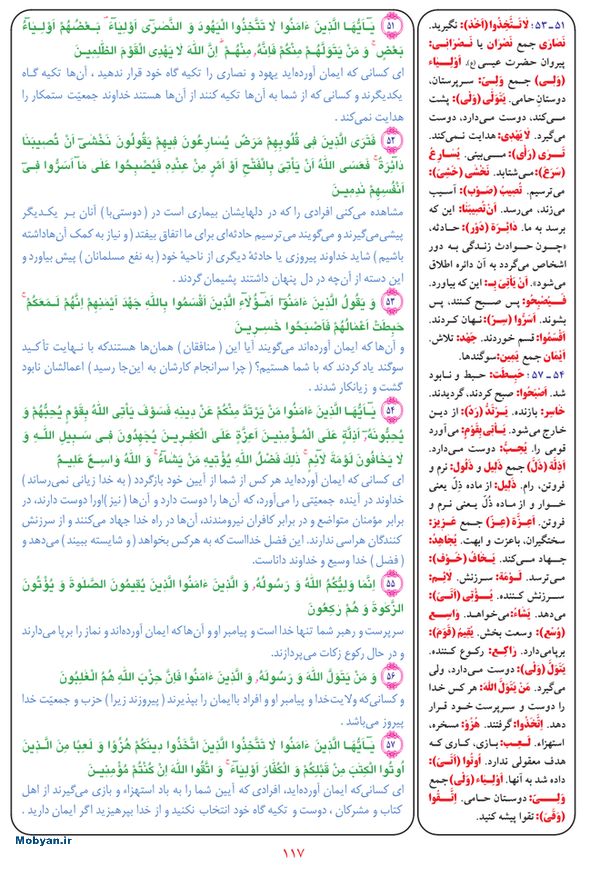 ۵۱
يَـٰٓأَيُّهَا الَّذِينَ ءَامَنُوا لَا تَتَّخِذُوا الْيَهُودَ وَ النَّصَٰرَىٰٓ أَوْلِيَآءَ ۘ بَعْضُهُمْ أَوْلِيَآءُ
بَعْضٍ ۚ وَ مَنْ يَتَوَلَّهُمْ مِنْكُمْ فَإِنَّهُۥ مِنْهُمْ ۗ إِنَّ اللَّهَ لَا يَهْدِى الْقَوْمَ الظَّٰلِمِينَ
ای کسانی که ایمان آورده‌اید یهود و نصاری را تکیه گاه خود قرار ندهید ، آن‌ها تکیه گاه
یکدیگرند و کسانی که از شما به آن‌ها تکیه کنند از آن‌ها هستند خداوند جمعیت ستمکار را
هدایت نمی‌کند .
۵۲
فَتَرَى الَّذِينَ فِى قُلُوبِهِمْ مَرَضٌ يُسَارِعُونَ فِيهِمْ يَقُولُونَ نَخْشَىٰٓ أَنْ تُصِيبَنَا
دَآئِرَةٌ ۚ فَعَسَى اللَّهُ أَنْ يَأْتِىَ بِالْفَتْحِ أَوْ أَمْرٍ مِنْ عِنْدِهِ فَيُصْبِحُوا عَلَىٰ مَآ أَسَرُّوا فِىٓ
أَنْفُسِهِمْ نَٰدِمِينَ
مشاهده می‌کنی افرادی را که در دلهایشان بیماری است در ( دوستی‌با ) آنان بر یکدیگر
پیشی‌می‌گیرند و می‌گویند می‌ترسیم حادثه‌ای برای ما اتفاق بیفتد ( و نیاز به کمک آن‌هاداشته
باشیم ) شاید خداوند پیروزی یا حادثهٔ دیگری از ناحیهٔ خود ( به نفع مسلمانان ) پیش بیاورد و
این دسته از آن‌چه در دل پنهان داشتند پشیمان گردند .
۵۳
وَ يَقُولُ الَّذِينَ ءَامَنُوٓا أَهَٰٓؤُلَآءِ الَّذِينَ أَقْسَمُوا بِاللَّهِ جَهْدَ أَيْمَٰنِهِمْ إِنَّهُمْ لَمَعَكُمْ ۚ
حَبِطَتْ أَعْمَالُهُمْ فَأَصْبَحُوا خَٰسِرِينَ
و آن‌ها که ایمان آورده‌اند می‌گویند آیا این ( منافقان ) همان‌ها هستندکه با نهایت تأکید
سوگند یاد کردند که با شما هستیم؟ ( چرا سرانجام کارشان به این‌جا رسید ) اعمالشان نابود
گشت و زیانکار شدند .
۵۴
يَـٰٓأَيُّهَا الَّذِينَ ءَامَنُوا مَنْ يَرْتَدَّ مِنْكُمْ عَنْ دِينِهِ فَسَوْفَ يَأْتِى اللَّهُ بِقَوْمٍ يُحِبُّهُمْ وَ
يُحِبُّونَهُۥٓ أَذِلَّةٍ عَلَى الْمُؤْمِنِينَ أَعِزَّةٍ عَلَى الْكَٰفِرِينَ يُجَٰهِدُونَ فِى سَبِيلِ اللَّهِ وَ
لَا يَخَافُونَ لَوْمَةَ لَآئِمٍ ۚ ذَٰلِكَ فَضْلُ اللَّهِ يُؤْتِيهِ مَنْ يَشَآءُ ۚ وَ اللَّهُ وَاسِعٌ عَلِيمٌ
ای کسانی که ایمان آورده‌اید هر کس از شما از آیین خود بازگردد ( به خدا زیانی نمی‌رساند )
خداوند در آینده جمعیّتی را می‌آورد، که آن‌ها را دوست دارد و آن‌ها ( نیز )اورا دوست دارند، در
برابر مؤمنان متواضع و در برابر کافران نیرومندند، آن‌ها در راه خدا جهاد می‌کنند و از سرزنش
کنندگان هراسی ندارند. این فضل خدااست که به هرکس بخواهد ( و شایسته ببیند ) می‌دهد و
( فضل ) خدا وسیع و خداوند داناست.
۵۵
إِنَّمَا وَلِيُّكُمُ اللَّهُ وَ رَسُولُهُۥ وَ الَّذِينَ ءَامَنُوا الَّذِينَ يُقِيمُونَ الصَّلَوٰةَ وَ يُؤْتُونَ
الزَّكَوٰةَ وَ هُمْ رَٰكِعُونَ
سرپرست و رهبر شما تنها خدا است و پیامبر او و آن‌ها‌که ایمان آورده‌اند و نماز را برپا می‌دارند
و در حال رکوع زکات می‌پردازند.
۵۶
وَ مَنْ يَتَوَلَّ اللَّهَ وَ رَسُولَهُۥ وَ الَّذِينَ ءَامَنُوا فَإِنَّ حِزْبَ اللَّهِ هُمُ الْغَٰلِبُونَ
و کسانی‌که ولایت‌خدا و پیامبر او و افراد باایمان را بپذیرند ( پیروزند زیرا ) حزب و جمعیّت خدا
پیروز می‌باشد .
۵۷
يَـٰٓأَيُّهَا الَّذِينَ ءَامَنُوا لَا تَتَّخِذُوا الَّذِينَ اتَّخَذُوا دِينَكُمْ هُزُوًا وَ لَعِبًا مِنَ الَّذِينَ
أُوتُوا الْكِتَٰبَ مِنْ قَبْلِكُمْ وَ الْكُفَّارَ أَوْلِيَآءَ ۚ وَ اتَّقُوا اللَّهَ إِنْ كُنْتُمْ مُؤْمِنِينَ
ای کسانی‌که ایمان آورده‌اید، افرادی که آیین شما را به باد استهزاء و بازی می‌گیرند از اهل
کتاب و مشرکان ، دوست و تکیه گاه خود انتخاب نکنید و از خدا بپرهیزید اگر ایمان دارید .
۵۱ ـ ۵۳ : لَاتَتَّخِذُوا (أَخَذَ): نگیرید.
نَصَارَی جمع نَصْران یا نَصْرانی:
پیروان حضرت عیسی (ع). أَوْلِیَاء
(وَلِی) جمع وَلِیّ: سرپرستان،
دوستان‌حامی. یَتَوَلَّی (وَلِیَ): پشت
می‌کند، دوست می‌دارد، دوست
می‌گیرد. لَایَهْدِی: هدایت نمی‌کند.
تَرَی (رَأَی): می‌بینی. یُسَارِعُ
(سَرُعَ): می‌شتابد. نَخْشَی (خَشِیَ):
می‌ترسیم. تُصِیبُ (صَوَبَ): آسیب
می‌زند، می‌رسد. أَنْ‌تُصِیبَنَا: این که
برسد به ما. دَائِرَة (دَوَرَ): حادثه،
«چـون حوادث زندگـی به دور
اشخاص می‌گردد به آن دائره اطلاق
می‌شود». أَنْ یَأْتِیَ بِـ: این که بیاورد.
فَیُصْبِحُوا: پس صبح کنند، پس
بشوند. أَسَرُّوا (سِرّ): نهان کردند.
أَقْسَمُوا: قسم خوردند. جَهْد: تلاش.
أَیْمَان جمع یَمِین: سوگندها.
۵۴ ـ ۵۷ : حَبِطَتْ: حبط و نابود
شد. أَصْبَحُوا: صبح کردند، گردیدند.
خَاسِر: بازنده. یَرْتَدُّ (رَدَّ): از دین
خارج می‌شود. یَأْتِی‌بِقَوْمٍ: می‌آورد
قومی را. یُحِبُّ: دوست مـی‌دارد.
أَذِلَّة (ذَلَّ) جمع ذَلِیل و ذَلُول: نرم و
فروتن، رام. ذَلِیل: از ماده ذِلّ یعنی
خوار و از ماده ذُلّ یعنی نرم و
فروتن. أَعِزَّة (عِزّ) جمـع عَزِیز:
سختگیران، باعزت و ابهت. یُجَاهِدُ:
جهاد می‌کند. یَخَافُ (خَوْف):
می‌ترسد. لَوْمَة: سرزنش. لَائِم:
سرزنش کننده. یُؤْتِی (أَتَی):
می‌دهد. یَشَاءُ: می‌خواهد. وَاسِع
(وَسِعَ): وسعت بخش. یُقِیمُ (قَوَمَ):
برپامی‌دارد. رَاکِع: رکوع کننده.
یَتَوَلَّ (وَلِیَ): دوست مـی‌دارد، ولی
می‌گیرد. مَنْ یَتَوَلَّ اللَّهَ: هر کس خدا
را دوست و سرپرست خود قرار
دهد. اِتَّخَذُوا: گرفتند. هُزُو: مسخره،
استهزاء. لَعِب: بازی، کاری که
هدف معقولی ندارد. أُوتُوا (أَتَی):
داده شد به آنها. أَوْلِیَاء (وَلِی) جمع
وَلِیّ: دوستان حامی. اِتَّقُوا
(وَقَی): تقوا پیشه کنید.
Mobyan.ir
۱۱۷